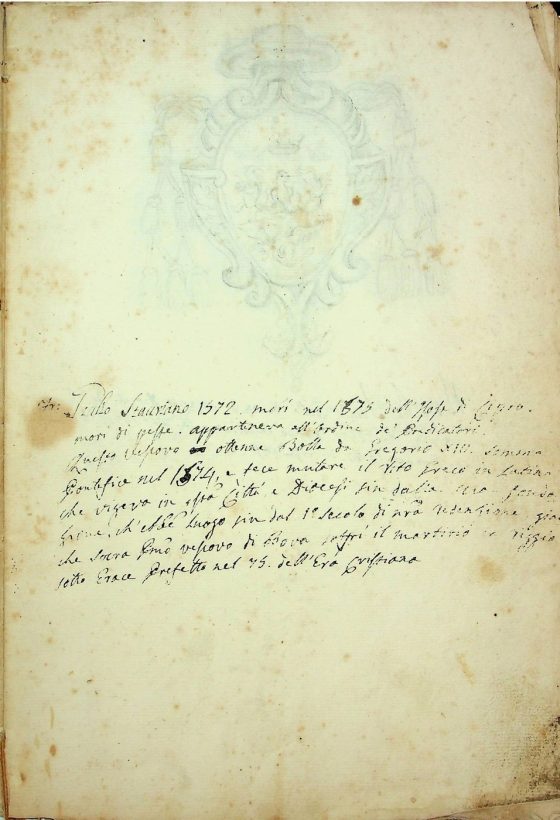 Fr: Julio Staurieno 1572 morì nel 1575 dell'Isola di Cipro.
morì di peste. apparteneva all'Ordine de' Predicatori.
Questo vescovo ottenne Bolla da Gregorio XIII. Sommo
Pontefice nel 1574, e fece mutare il rito greco in latino
che vigeva in essa Città e Diocesi sin dalla sua
ch'ebbe luogo sin dal 1º secolo di nra redenzione, già
che Suera Pmo vescovo di Bova soffrì il martirio in riggio
sotto Erace Prefetto nel 75. dell'Era Cristiana